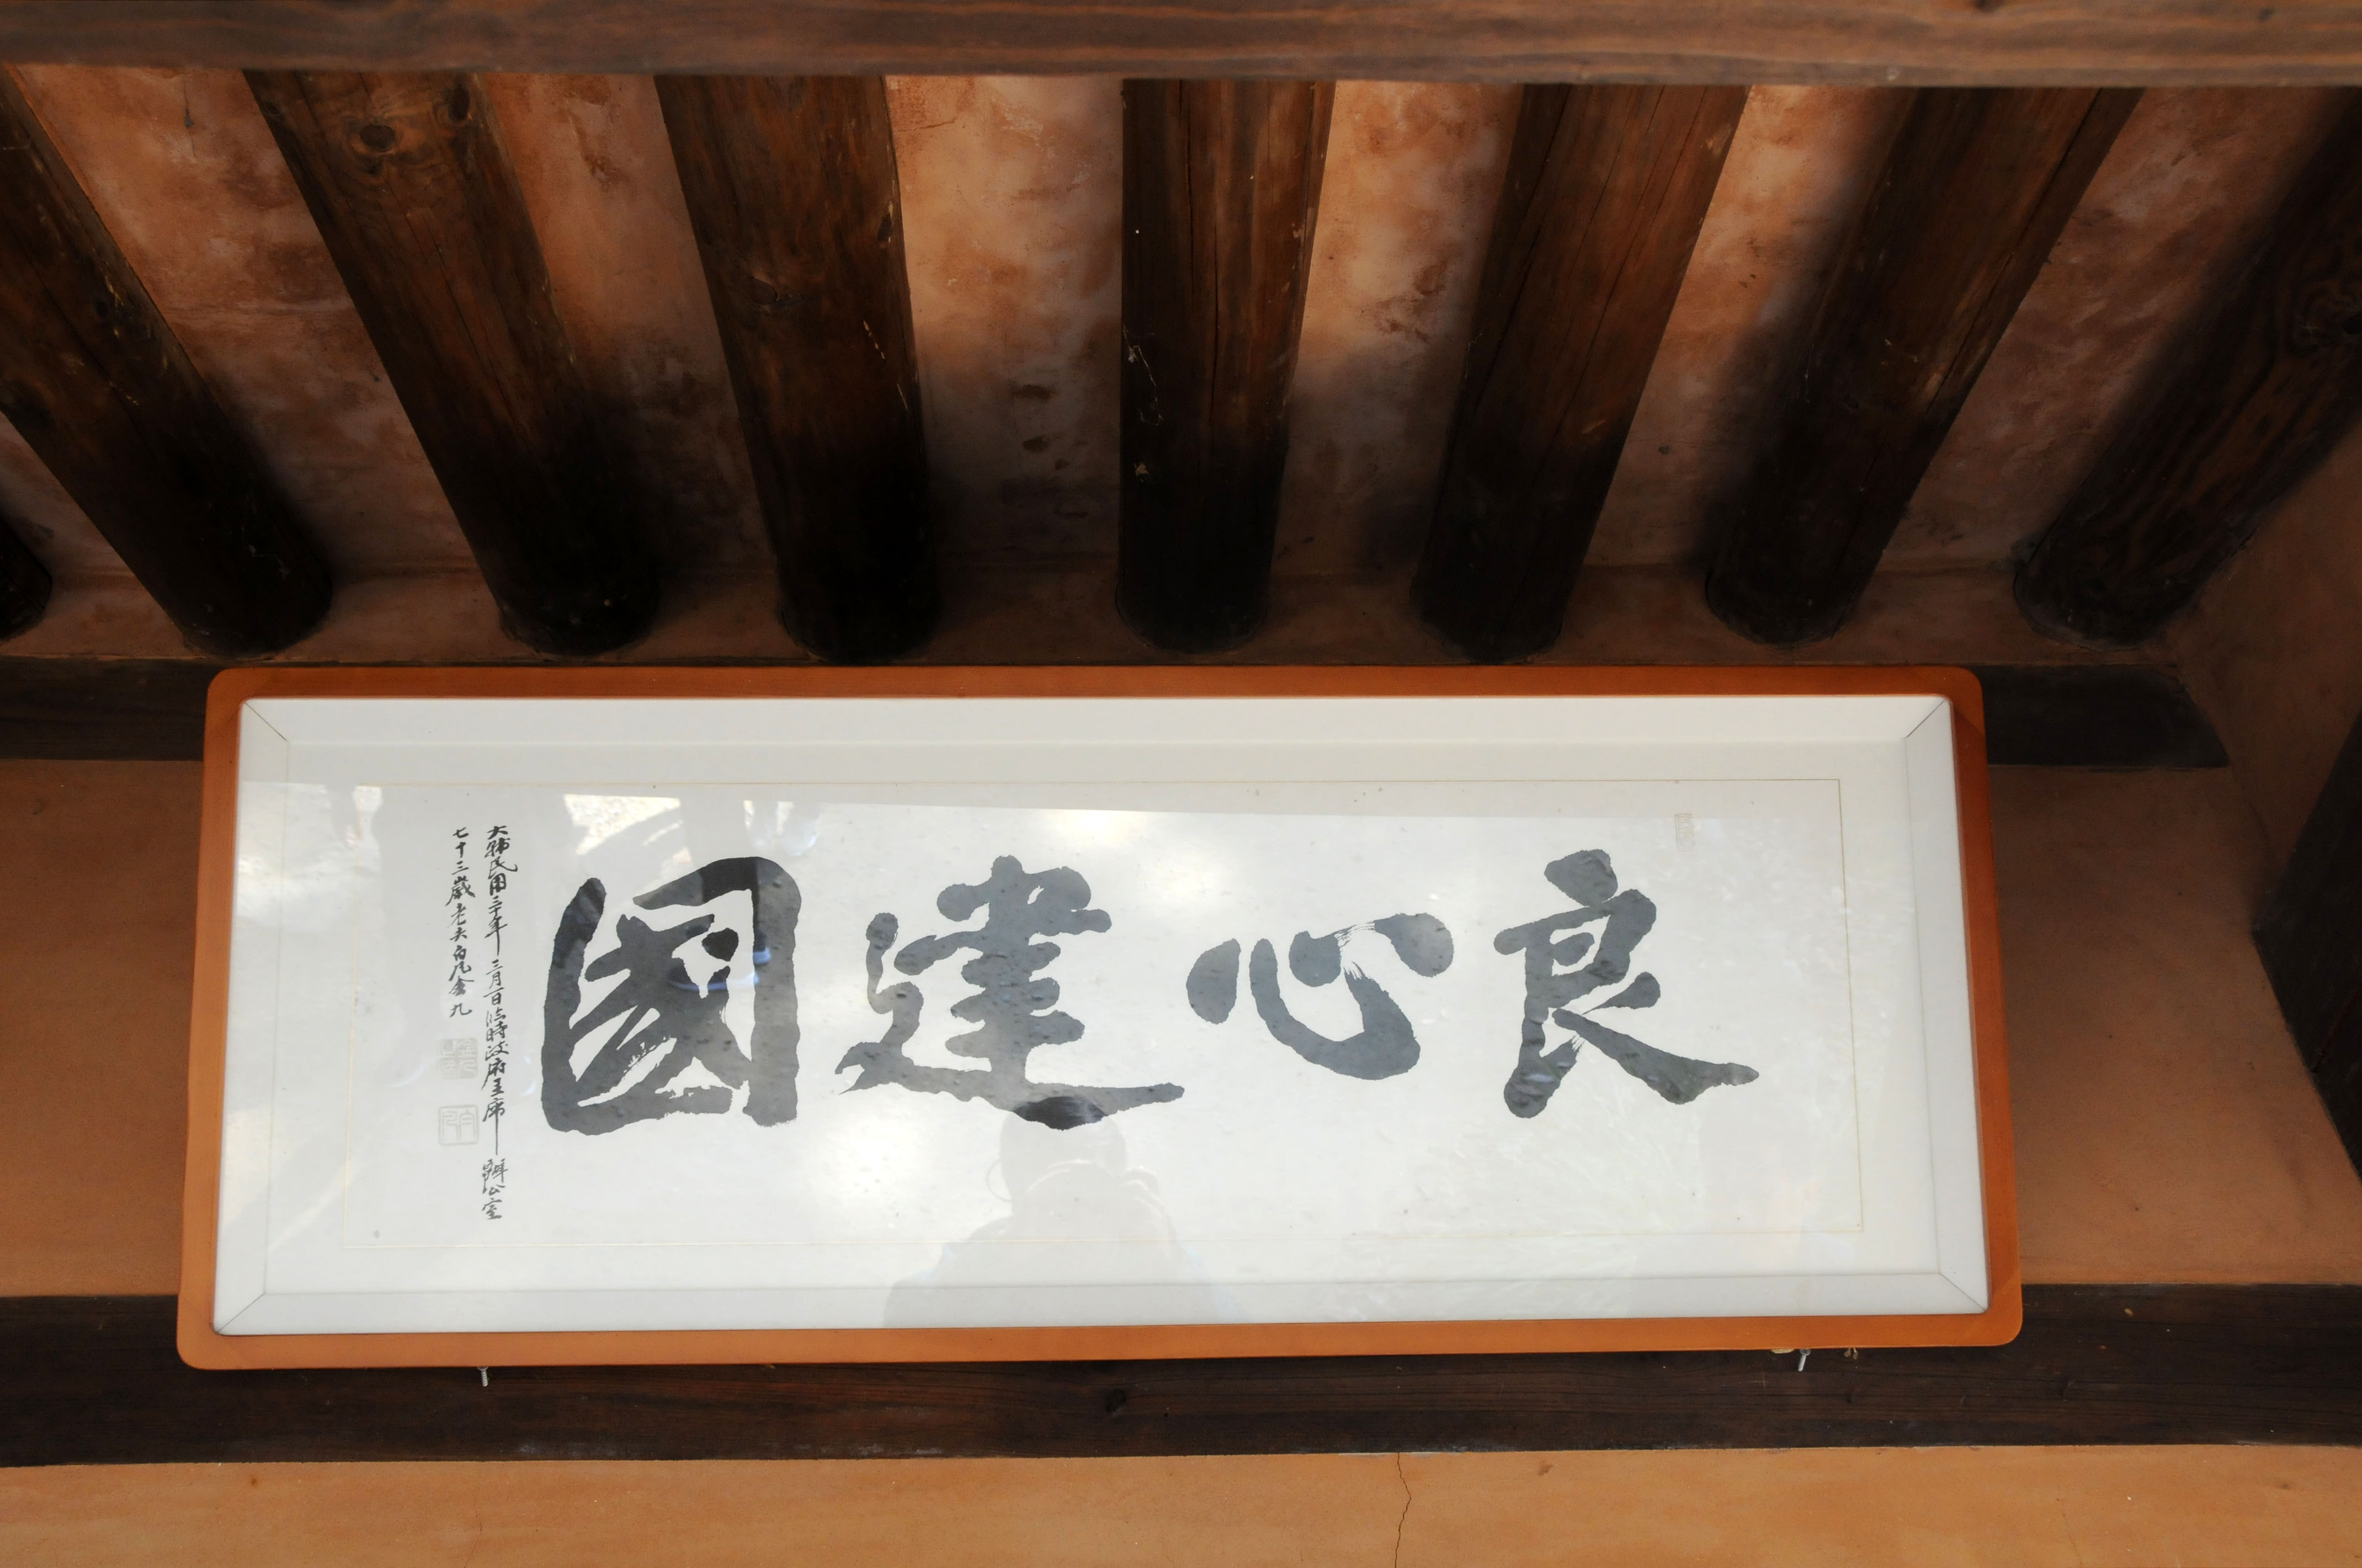 良心建國
大韓民國三十年三月一日臨時政府主席辦公室
七十三歲老夫白凡金九